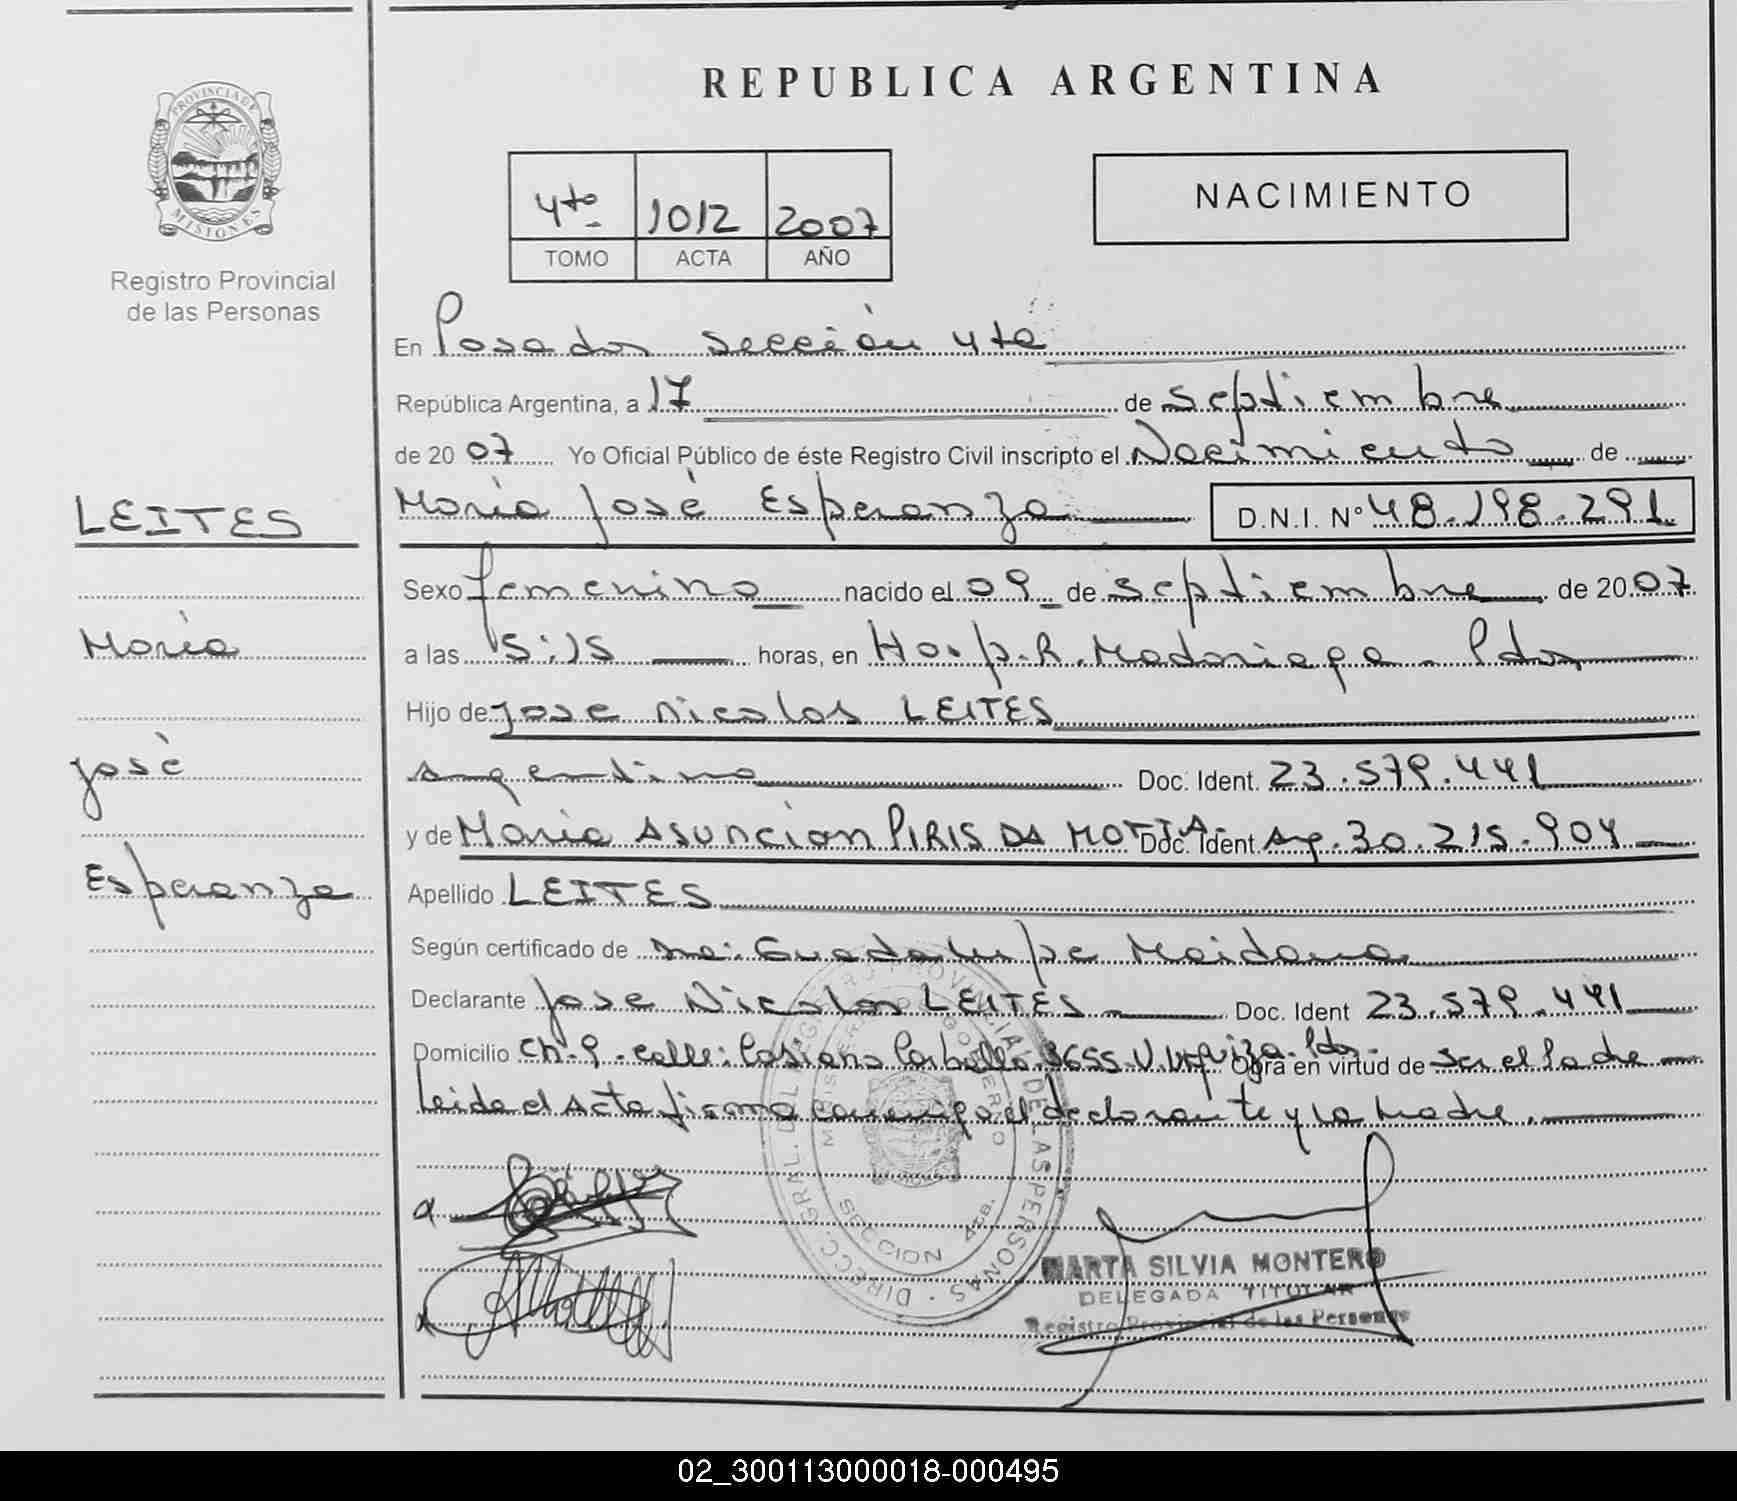 REPUBLICA ARGENTINA
PROVINCIA DE
MISIONES
Registro Provincial
de las Personas
4to 1012 2007
TOMO ACTA AÑO
NACIMIENTO
En Posadas sección 4ta
República Argentina, a 17 de septiembre
de 2007 Yo Oficial Público de éste Registro Civil inscripto el Nacimiento de
LEITES
María José Esperanza D.N.I. N° 48.198.291
Sexo femenino nacido el 09 de septiembre de 2007
María
a las 5:15 horas, en Hosp. R. Madariaga - Pdas
Hijo de Jose Nicolas LEITES
José
argentino Doc. Ident. 23.579.441
y de Maria ASUNCION PIRIS DA MOTTA Doc. Ident Arg. 30.215.904
Esperanza
Apellido LEITES
Según certificado de Guadalupe Maidana
Declarante Jose Nicolas LEITES Doc. Ident 23.579.441
Domicilio CH. 9 - calle: Casiano Carballo 3655-V. Urquiza. Pdas. Obra en virtud de ser el Padre
leida el Acta firma conmigo el declarante y la madre.
DIRECC. GRAL. DEL REGISTRO PROVINCIAL DE LAS PERSONAS
MINISTERIO DE GOBIERNO
SECCION 4ta.
MARTA SILVIA MONTERO
DELEGADA TITULAR
Registro Provincial de las Personas
02_300113000018-000495